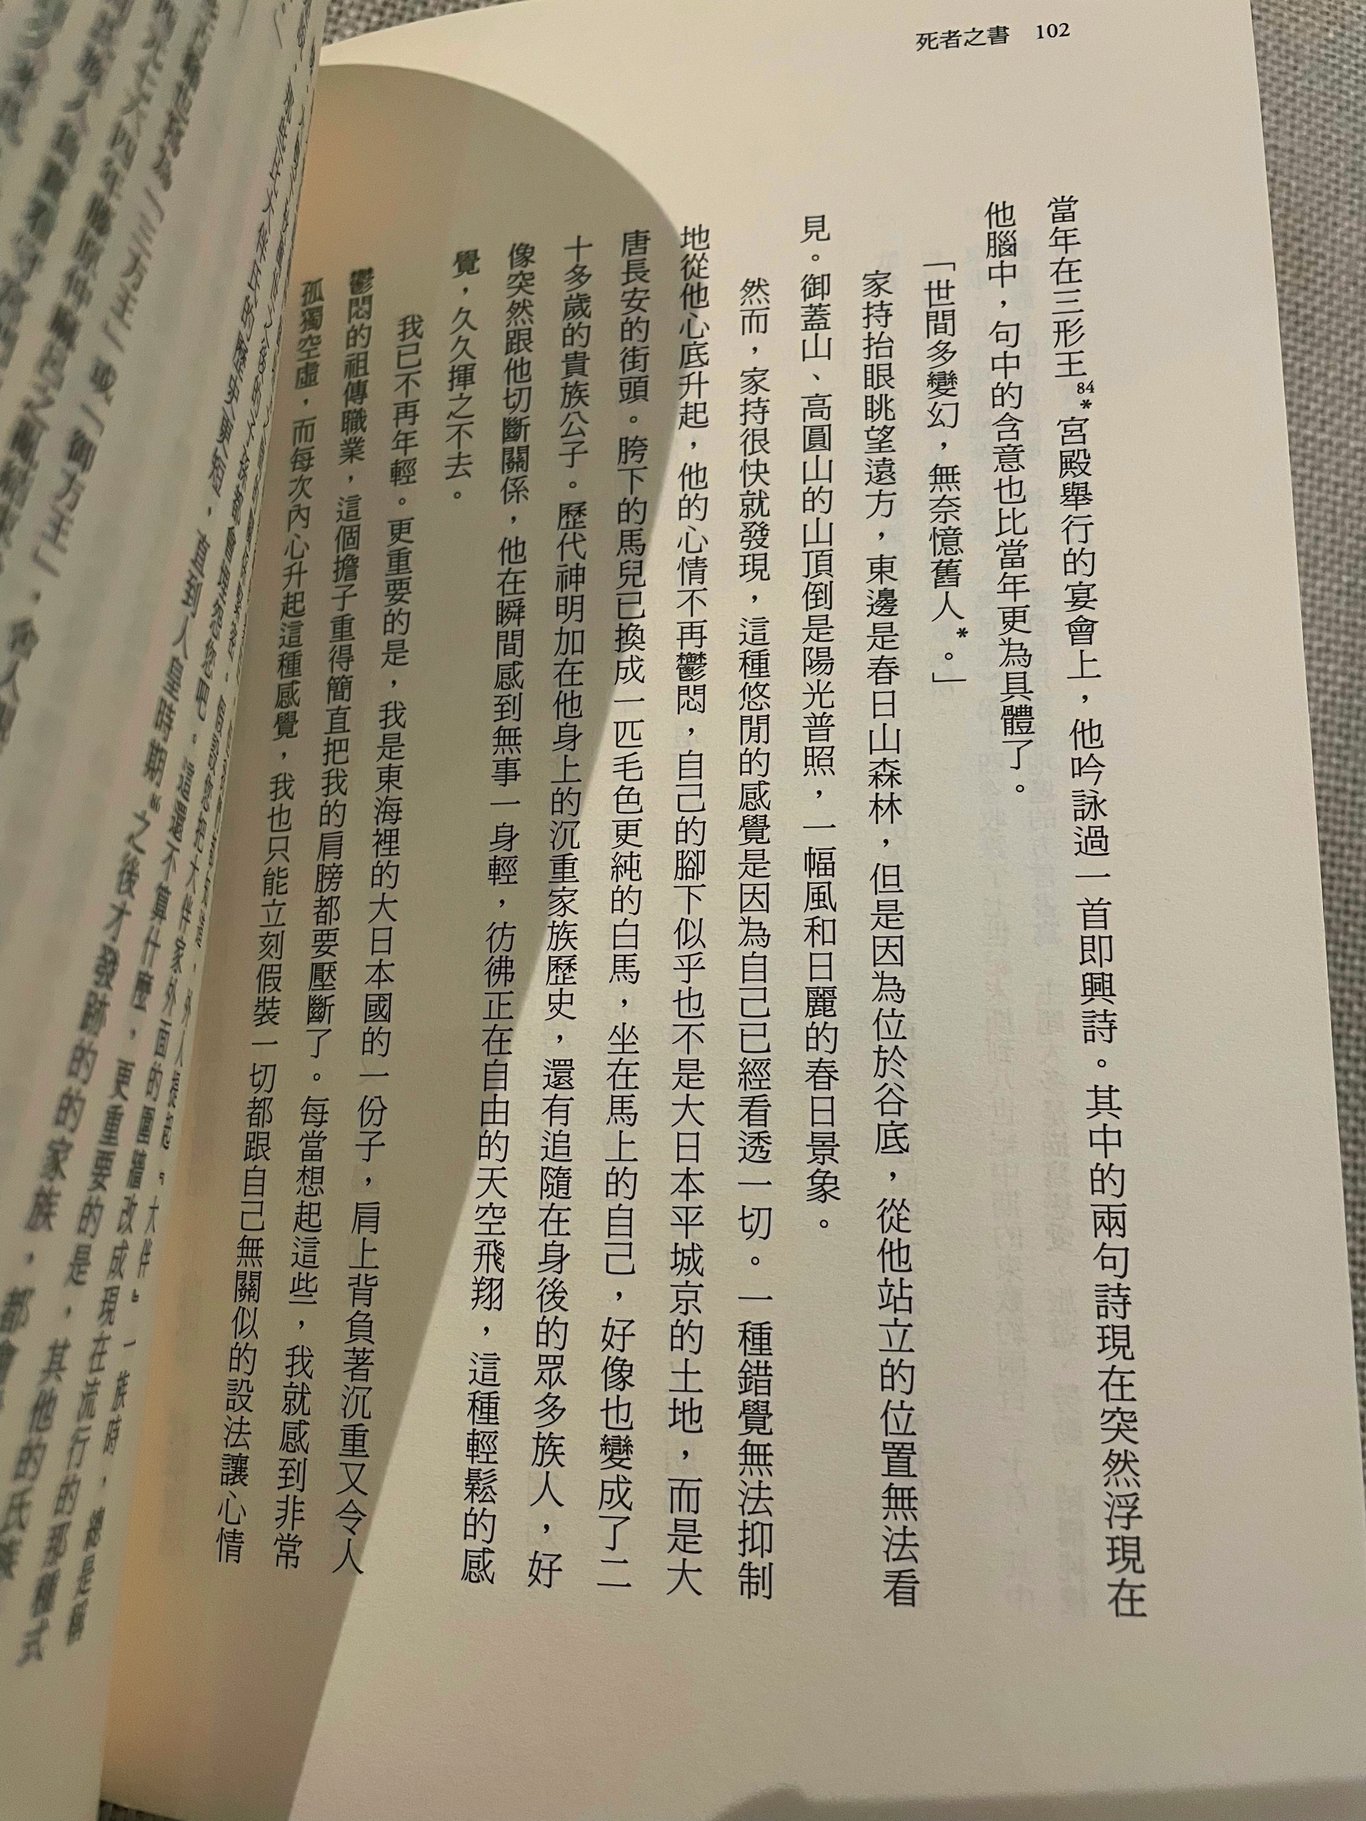 死者之書 102
當年在三形王。84*宮殿舉行的宴會上，他吟詠過一首即興詩。其中的兩句詩現在突然浮現在
他腦中，句中的含意也比當年更為具體了。
「世間多變幻，無奈憶舊人*。」
家持抬眼眺望遠方，東邊是春日山森林，但是因為位於谷底，從他站立的位置無法看
見。御蓋山、高圓山的山頂倒是陽光普照，一幅風和日麗的春日景象。
然而，家持很快就發現，這種悠閒的感覺是因為自己已經看透一切。一種錯覺無法抑制
地從他心底升起，他的心情不再鬱悶，自己的腳下似乎也不是大日本平城京的土地，而是大
唐長安的街頭。胯下的馬兒已換成一匹毛色更純的白馬，坐在馬上的自己，好像也變成了二
十多歲的貴族公子。歷代神明加在他身上的沉重家族歷史，還有追隨在身後的眾多族人，好
像突然跟他切斷關係，他在瞬間感到無事一身輕，彷彿正在自由的天空飛翔，這種輕鬆的感
覺，久久揮之不去。
我已不再年輕。更重要的是，我是東海裡的大日本國的一份子，肩上背負著沉重又令人
鬱悶的祖傳職業，這個擔子重得簡直把我的肩膀都要壓斷了。每當想起這些，我就感到非常
孤獨空虛，而每次內心升起這種感覺，我也只能立刻假裝一切都跟自己無關似的設法讓心情
外人提起『大伴』一族時，總是稱
您吧。這還不算什麼，更重要的是，其他的氏族
直到人皇時期86之後才發跡的的家族，都會
把大伴家外面的圍牆改成現在流行的那種式
「三方王」或「御方王」，